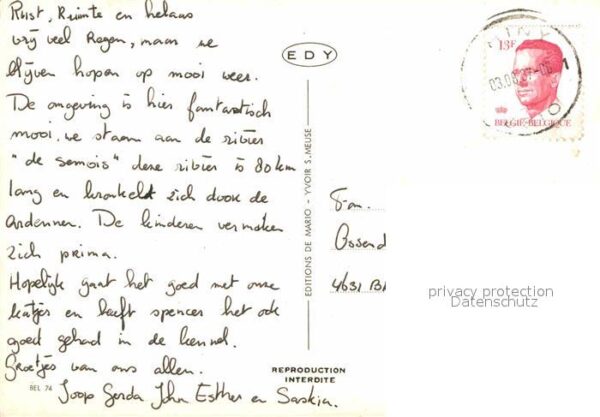 Rust, Ruimte en helaas
vrij veel Regen, maar we
blijven hopen op mooi weer.
De omgeving is hier fantastisch
mooi. we staan aan de rivier
"de Semois" deze rivier is 80 km
lang en kronkelt zich door de
Ardennen. De kinderen vermaken
zich prima.
Hopelijk gaat het goed met onze
katjes en heeft spencer het ook
goed gehad in de kennel.
Groetjes van ons allen.
Joop Gerda John Esther en Saskia.
BEL 74
EDY
EDITIONS DE MARIO - YVOIR S. MEUSE
REPRODUCTION
INTERDITE
13F
BELGIË-BELGIQUE
Fam.
Ossend
4631 BA
privacy protection
Datenschutz